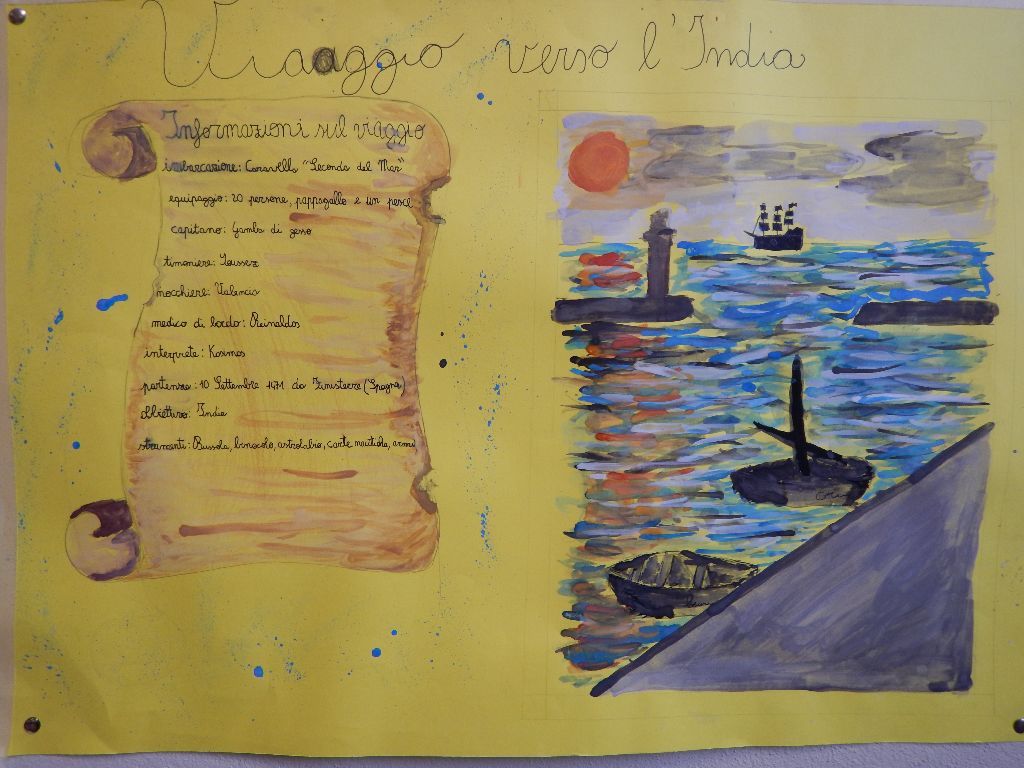 Viaaggio verso l'India
Informazioni sul viaggio
imbarcazione: Caravella "Seconda del Mar"
equipaggio: 20 persone, pappagallo e un pesce
capitano: Gamba di gesso
timoniere:
nocchiere: Valencia
medico di bordo: Reinaldos
interprete: Kosmos
partenza: 10 Settembre 1471 da Finisterre (Spagna)
obiettivo: India
strumenti: Bussola, binocolo, astrolabio, carte nautiche, armi